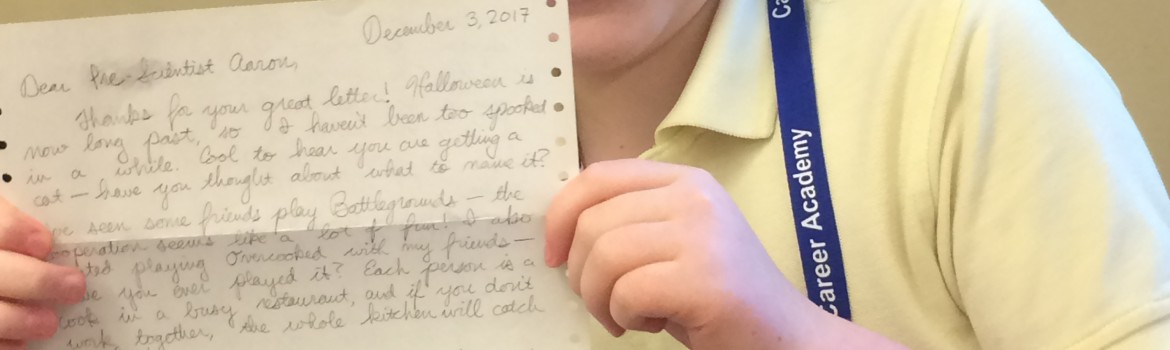 December 3, 2017
Dear Pre-Scientist Aaron,
Thanks for your great letter! Halloween is
now long past, so I haven't been too spooked
in a while. Cool to hear you are getting a
cat — have you thought about what to name it?
've seen some friends play Battlegrounds — the
operation seems like a lot of fun! I also
ted playing Overcooked with my friends —
ve you ever played it? Each person is a
cook in a busy restaurant, and if you don't
work together, the whole kitchen will catch
Ca
Career Academy